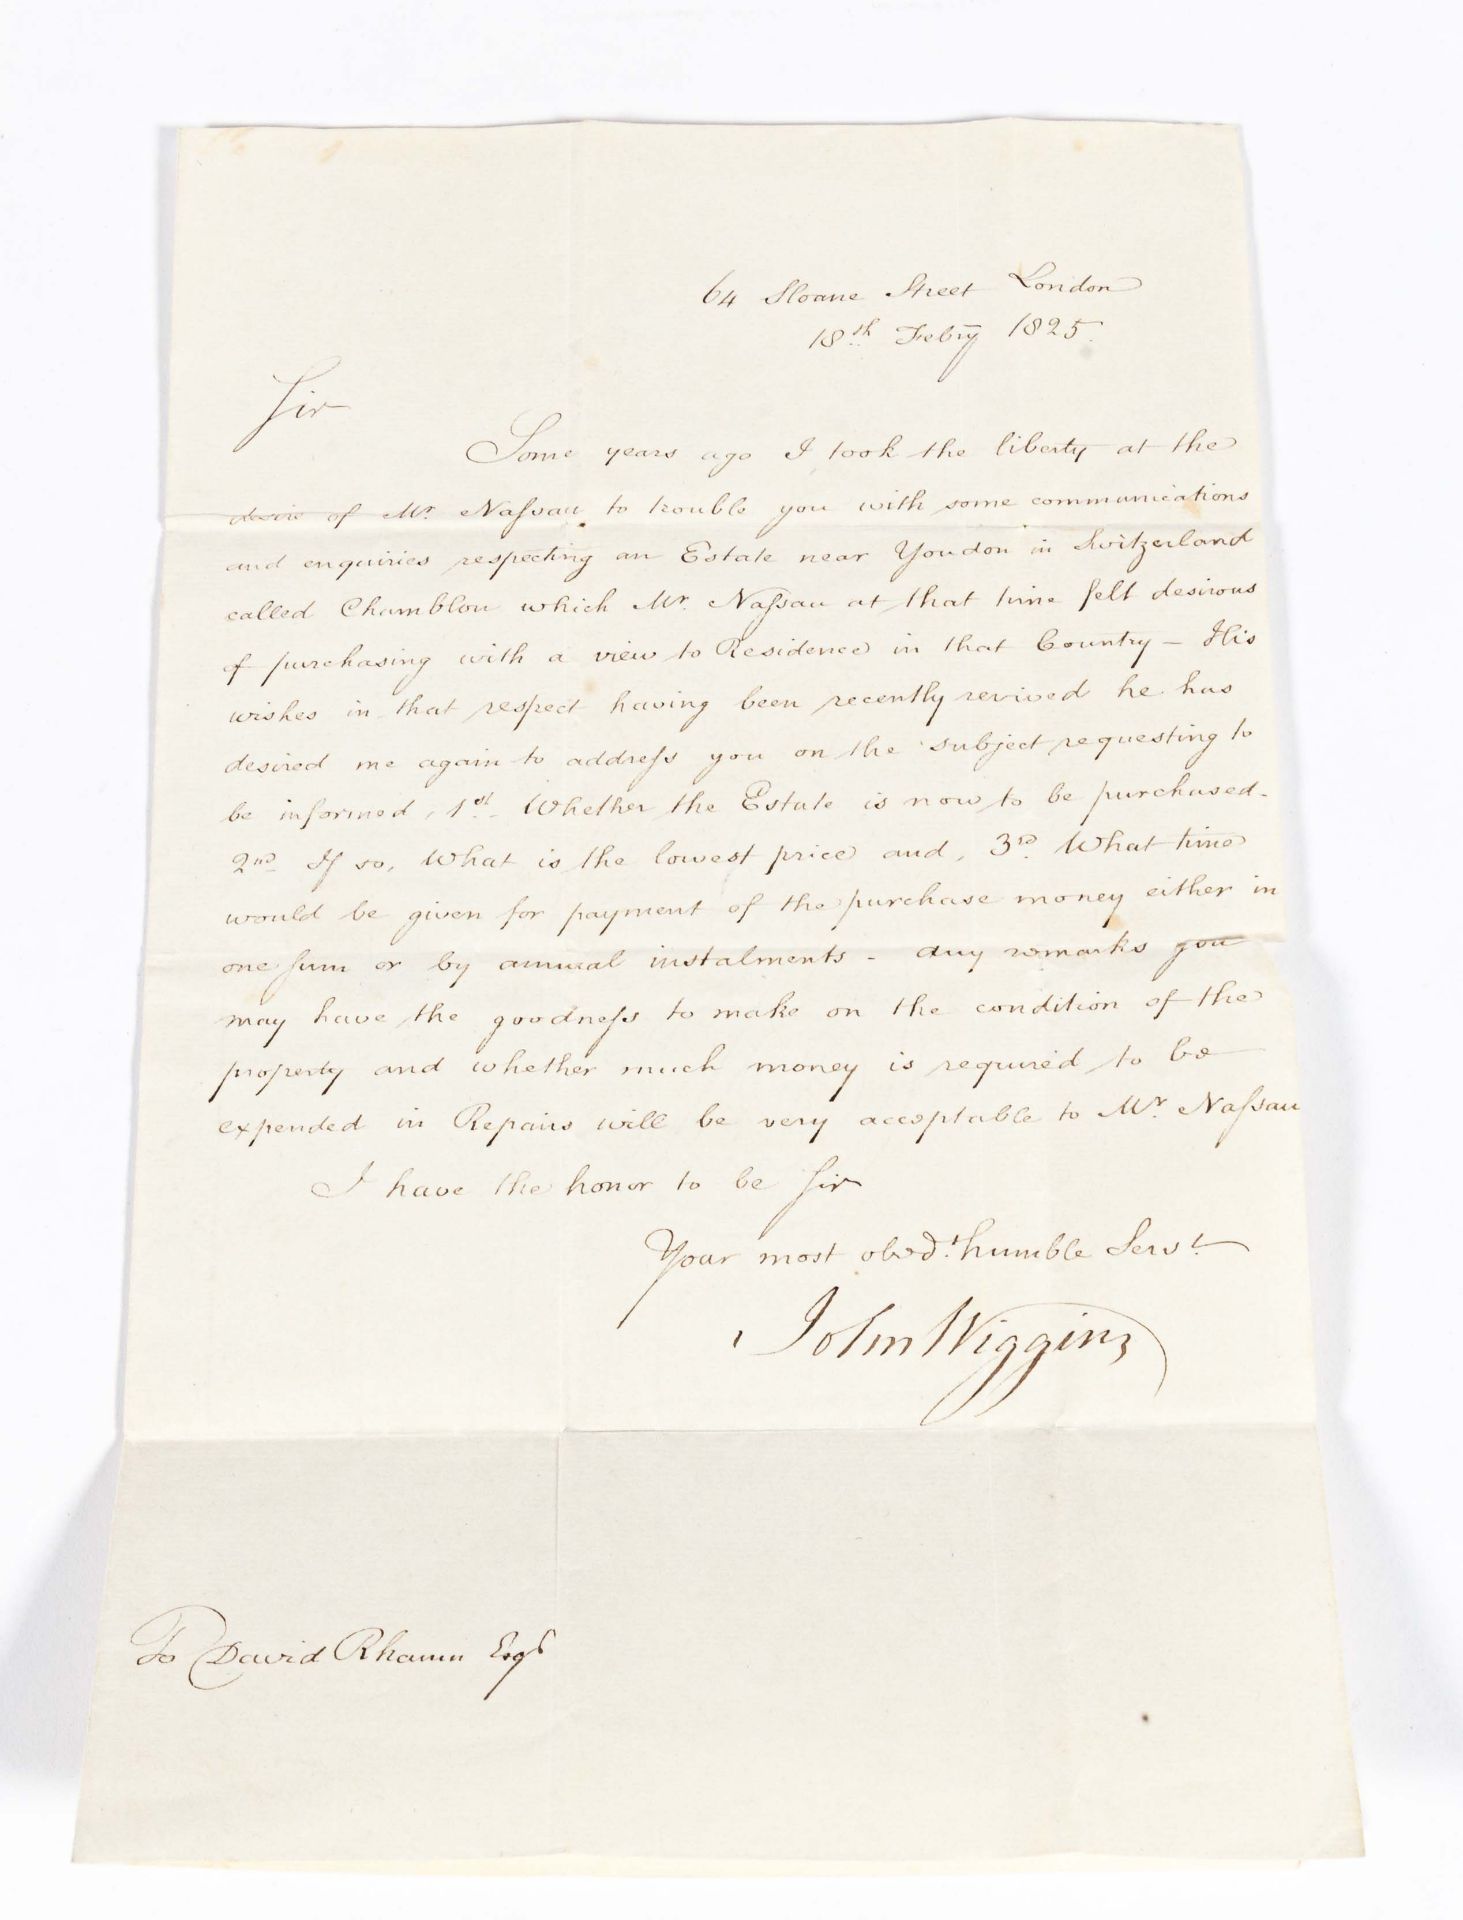 64 Sloane Street London
18th Febry 1825.
Sir
Some years ago I took the liberty at the
desire of Mr. Naſsau to trouble you with some communications
and enquiries respecting an Estate near Youdon in Switzerland
called Chamblon which Mr. Naſsau at that time felt desirous
of purchasing with a view to Residence in that Country – His
wishes in that respect having been recently revived he has
desired me again to addreſs you on the subject requesting to
be informed, 1st. Whether the Estate is now to be purchased –
2nd If so, What is the lowest price and, 3rd. What time
would be given for payment of the purchase money either in
one sum or by annual instalments – Any remarks you
may have the goodneſs to make on the condition of the
property and whether much money is required to be
expended in Repairs will be very acceptable to Mr. Naſsau
I have the honor to be Sir
Your most obedt. humble Servt.
John Wiggins
To David Rhamm Esqr